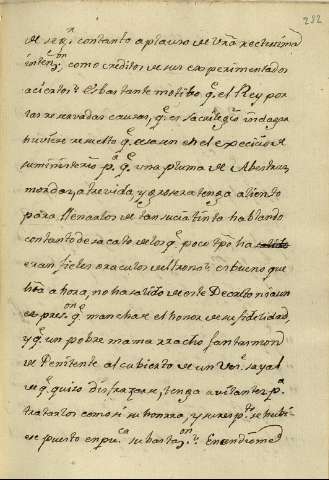 282
de ser contanto aplauso de Vra rectissima
intenz.on, como creditos de sus experimentados
aciertos: Es bastante motibo q.e el Rey por
las reservadas causas, q.e es sacrilegio indagar
hubiere resuelto q.e cesasen en el exercicio de
su ministerio p.a q.e una pluma de Abestruz,
mordaz, atrevida, y grosera tenga aliento
para llenarlos de tan sucia tinta hablando
contanto desacato de los q.e poco tpõ ha
eran fieles oraculos del trono: es bueno que
hta ahora, no ha salido de este Decreto ni aun
q.e manchar el honor de su fidelidad,
y q.e un pobre mamarracho fantasmon
de Penitente al cubierto de un sayal
de q.e quiso disfrazarse, tenga avilantez p.a
tratarlos como si su honrra, y su resp.to se hubi-
ese puesto en pu.ca subastaz.on: